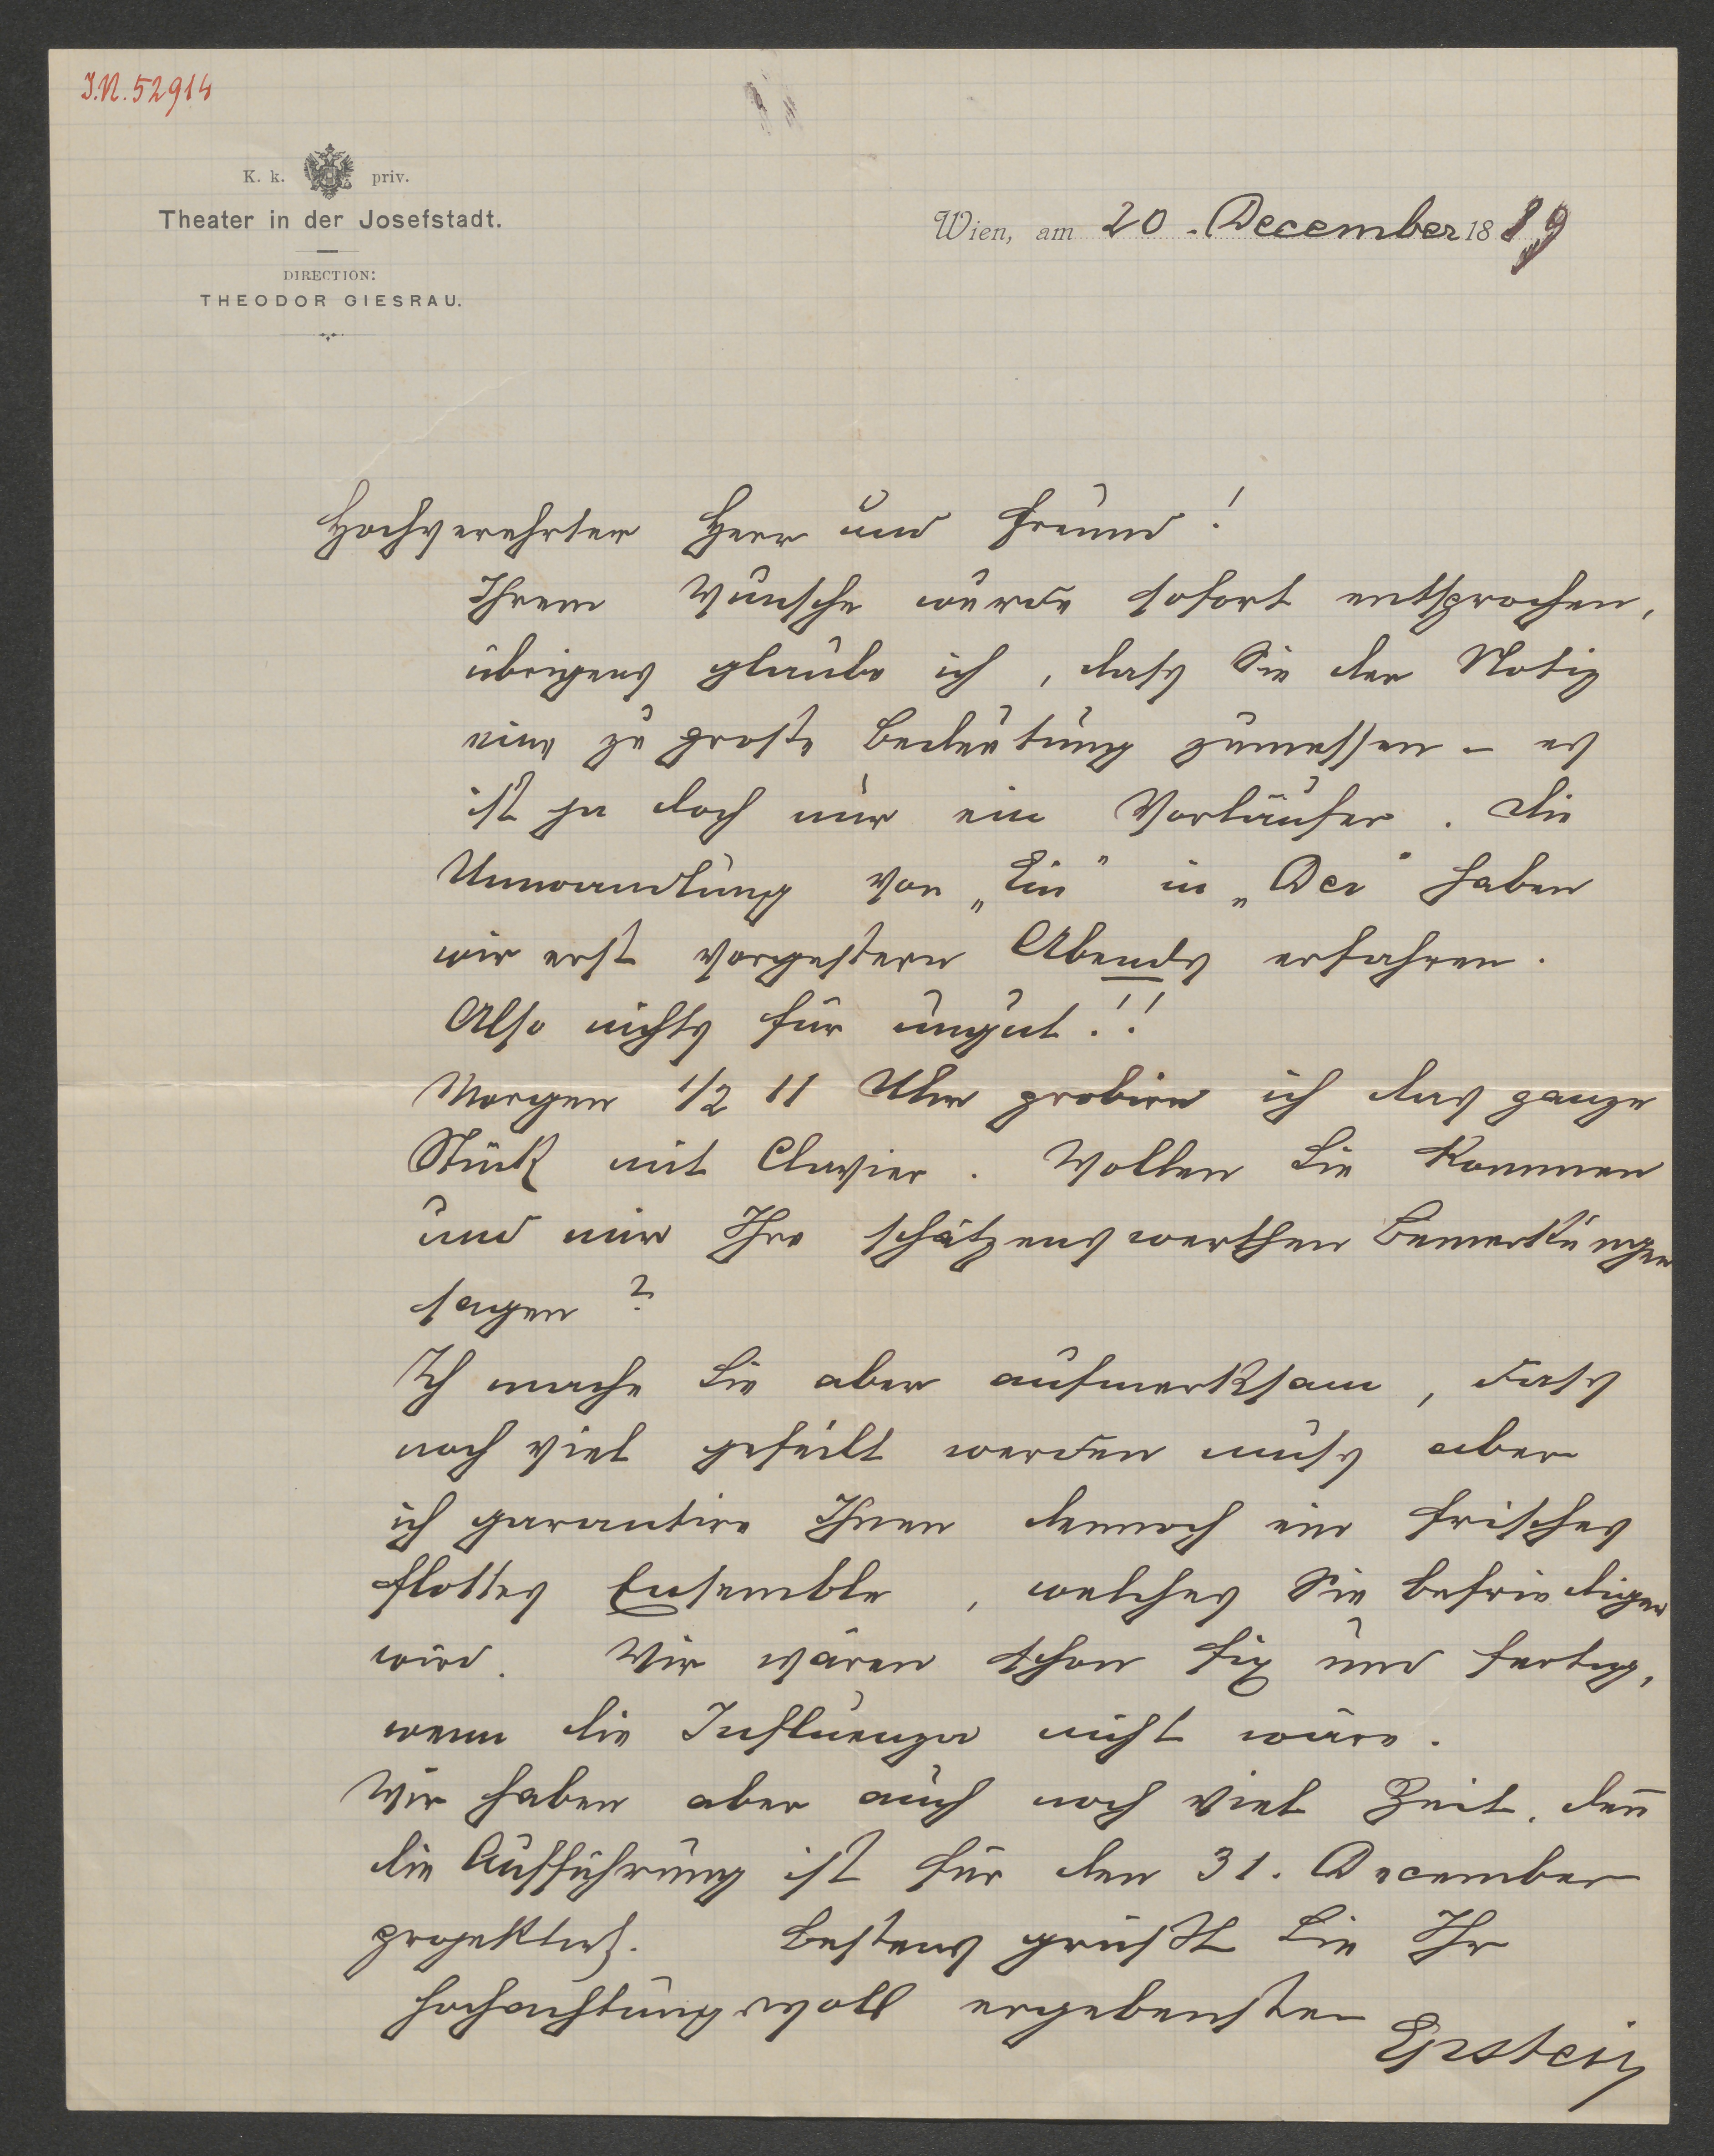 I.N. 52914
K. k. priv.
Theater in der Josefstadt.
DIRECTION:
THEODOR GIESRAU.
Wien, am 20. December 1889
Hochverehrter Herr und Freund!
Ihrem Wunsche wurde sofort entsprochen,
übrigens glaube ich, dass Sie der Notiz
eine zu große Bedeutung zumessen – es
ist ja doch nur ein Vorläufer. Die
Umwandlung von „Ein" in „Der" haben
wir erst vorgestern Abends erfahren.
Also nichts für ungut!!
Morgen 1/2 11 Uhr probire ich das ganze
Stück mit Clavier. Wollen Sie kommen
und mir Ihre schätzenswerthen Bemerkungen
sagen?
Ich mache Sie aber aufmerksam, dass
noch viel gefeilt werden muss aber
ich garantire Ihnen dennoch ein frisches
flottes Ensemble, welches Sie befriedigen
wird. Wir wären schon fix und fertig,
wenn die Influenza nicht wäre.
Wir haben aber auch noch viel Zeit, den̄
die Aufführung ist für den 31. December
projektirt. Bestens grüßt Sie Ihr
hochachtungsvoll ergebenster
Epstein